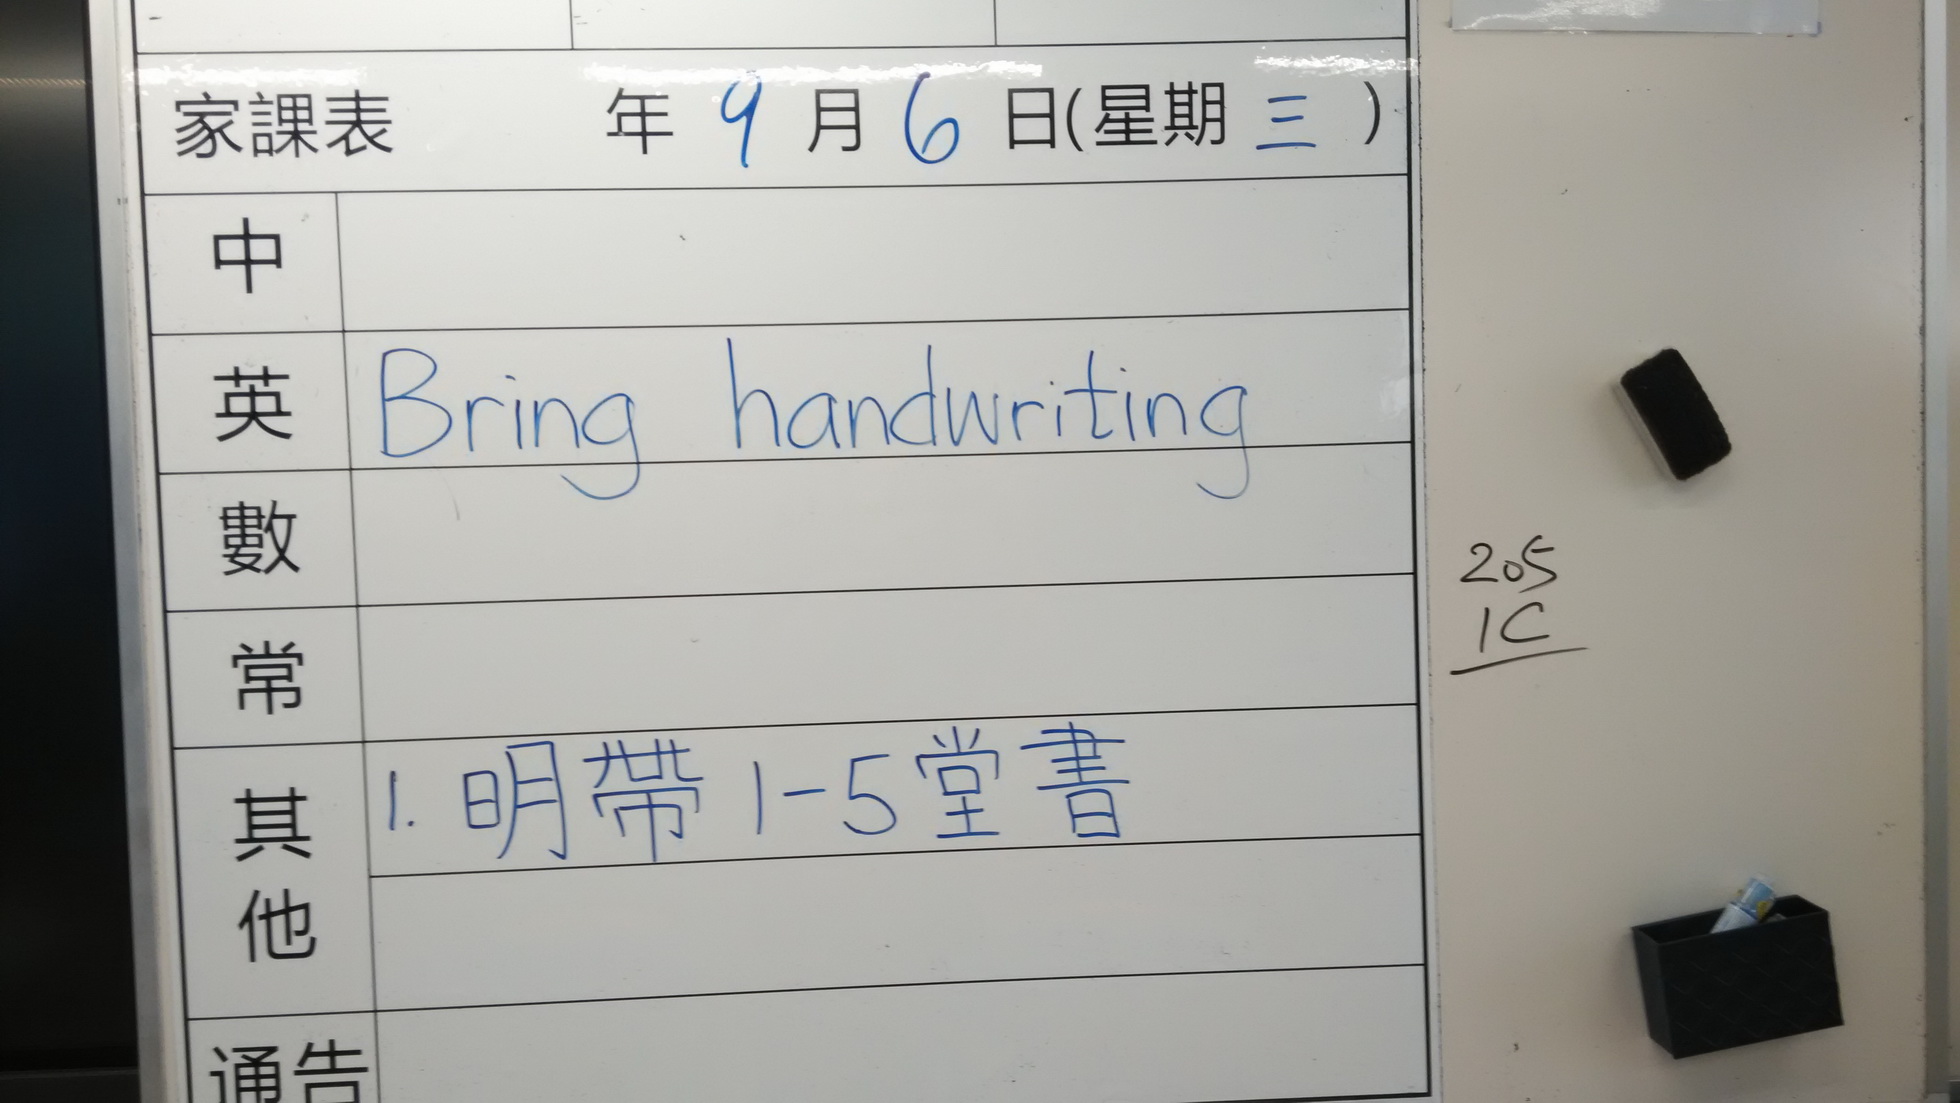 家課表 年 9 月 6 日(星期 三 )
中
英 Bring handwriting
數
常
其他 1. 明帶 1-5 堂書
通告
205
1C